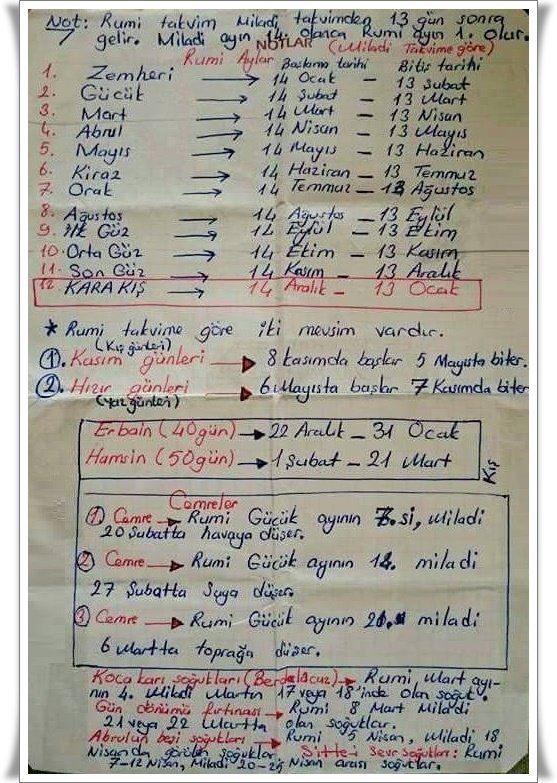 Not: Rumi takvim Miladi takvimden 13 gün sonra
gelir. Miladi ayın 14. olanca Rumi ayın 1. olur.
NOTLAR (Miladi Takvime göre)
Rumi Aylar Başlama tarihi Bitiş tarihi
1. Zemheri → 14 Ocak – 13 Şubat
2. Gücük → 14 Şubat – 13 Mart
3. Mart → 14 Mart – 13 Nisan
4. Abrul → 14 Nisan – 13 Mayıs
5. Mayıs → 14 Mayıs – 13 Haziran
6. Kiraz → 14 Haziran – 13 Temmuz
7. Orak → 14 Temmuz – 13 Ağustos
8. Ağustos → 14 Ağustos – 13 Eylül
9. İlk Güz → 14 Eylül – 13 Ekim
10. Orta Güz → 14 Ekim – 13 Kasım
11. Son Güz → 14 Kasım – 13 Aralık
12. KARA KIŞ → 14 Aralık – 13 Ocak
* Rumi takvime göre iki mevsim vardır.
(Kış günleri)
1. Kasım günleri → 8 kasımda başlar 5 Mayısta biter.
2. Hızır günleri → 6 Mayısta başlar 7 Kasımda biter
(Yaz günleri)
Erbain (40 gün) → 22 Aralık – 31 Ocak
Hamsin (50 gün) → 1 Şubat – 21 Mart
Kış
Cemreler
1) Cemre → Rumi Gücük ayının 7.si, Miladi
20 Şubatta havaya düşer.
2) Cemre → Rumi Gücük ayının 14. miladi
27 Şubatta Suya düşer.
3) Cemre → Rumi Gücük ayının 21. miladi
6 Martta toprağa düşer.
Koca karı soğukları (Berdelacuz) → Rumi Mart ayı-
nın 4. Miladi Martın 17 veya 18'inde olan soğuk.
Gün dönümü fırtınası → Rumi 8 Mart Miladi
21 veya 22 Martta olan soğuklar.
Abrulun beşi soğukları → Rumi 5 Nisan, Miladi 18
Nisanda görülen soğuklar. Sitte-i Sevr Soğukları: Rumi
7-12 Nisan, Miladi 20-25 Nisan arası soğuklar.